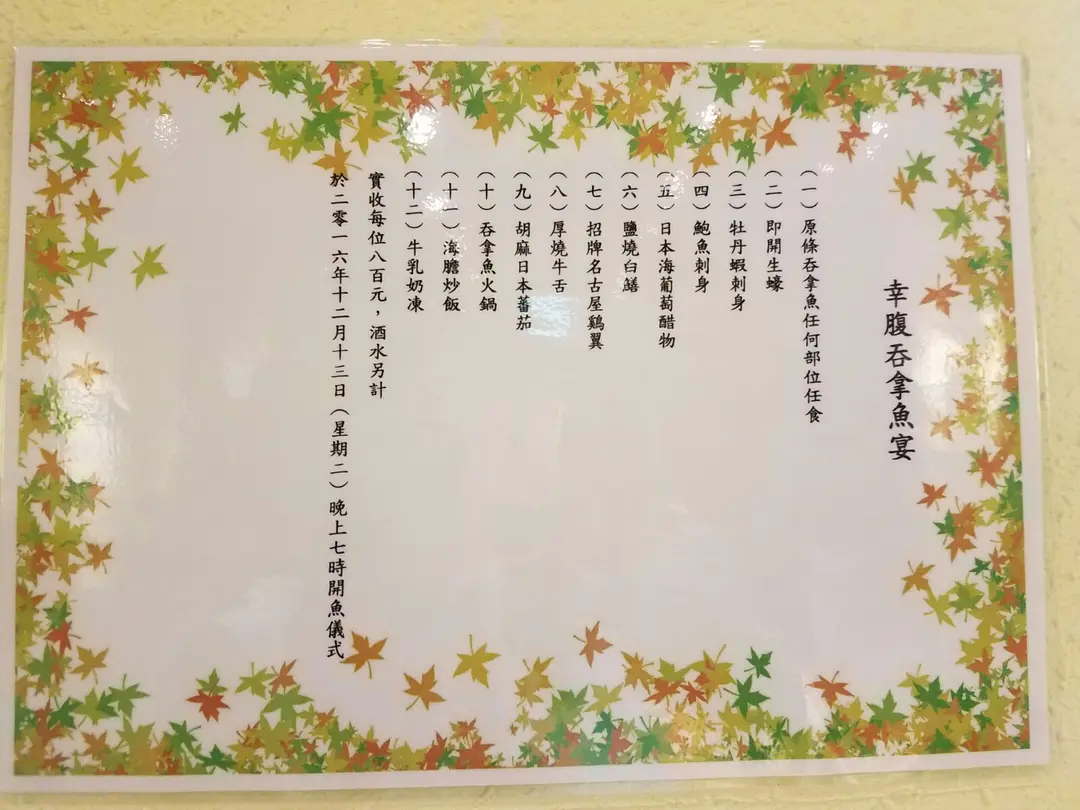 幸腹吞拿魚宴
（一）原條吞拿魚任何部位任食
（二）即開生蠔
（三）牡丹蝦刺身
（四）鮑魚刺身
（五）日本海葡萄醋物
（六）鹽燒白鱔
（七）招牌名古屋鷄翼
（八）厚燒牛舌
（九）胡麻日本蕃茄
（十）吞拿魚火鍋
（十一）海膽炒飯
（十二）牛乳奶凍
實收每位八百元，酒水另計
於二零一六年十二月十三日（星期二）晚上七時開魚儀式